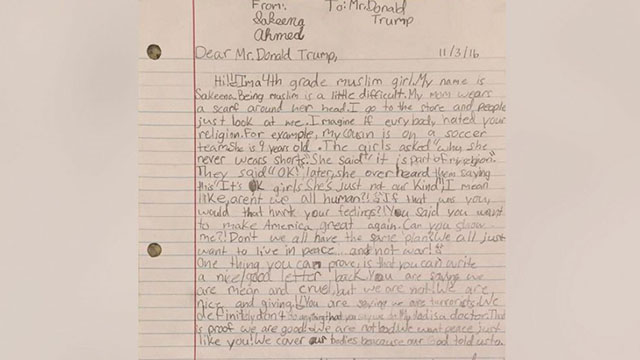 From: To: Mr. Donald
Sakeena Trump
Ahmed
Dear Mr. Donald Trump, 11/3/16
Hi!!! I'm a 4th grade muslim girl. My name is
Sakeena. Being muslim is a little difficult. My mom wears
a scarf around her head. I go to the store and people
just look at me. Imagine if eurybody hated your
religion. For example, my cousin is on a soccer
team. She is 9 years old. The girls asked "why she
never wears shorts." She said "it is part of my religion."
They said "OK!" later, she over heard them saying
this "It's OK girls. She's just not our kind." I mean
like, arent we all human?! If that was you,
would that hurt your feelings?! You said you want
to make America great again. Can you show
me?! Don't we all have the same plan? We all just
want to live in peace and not war!!
One thing you can prove, is that you can write
a nice/good letter back. You are saying we
are mean and cruel, but we are not! We are
nice and giving! You are saying we are terrorists. We
definitely don't My dad is a doctor. That
is proof we are good! We are not bad. We want peace just
like you! We cover our bodies because our God told us to.